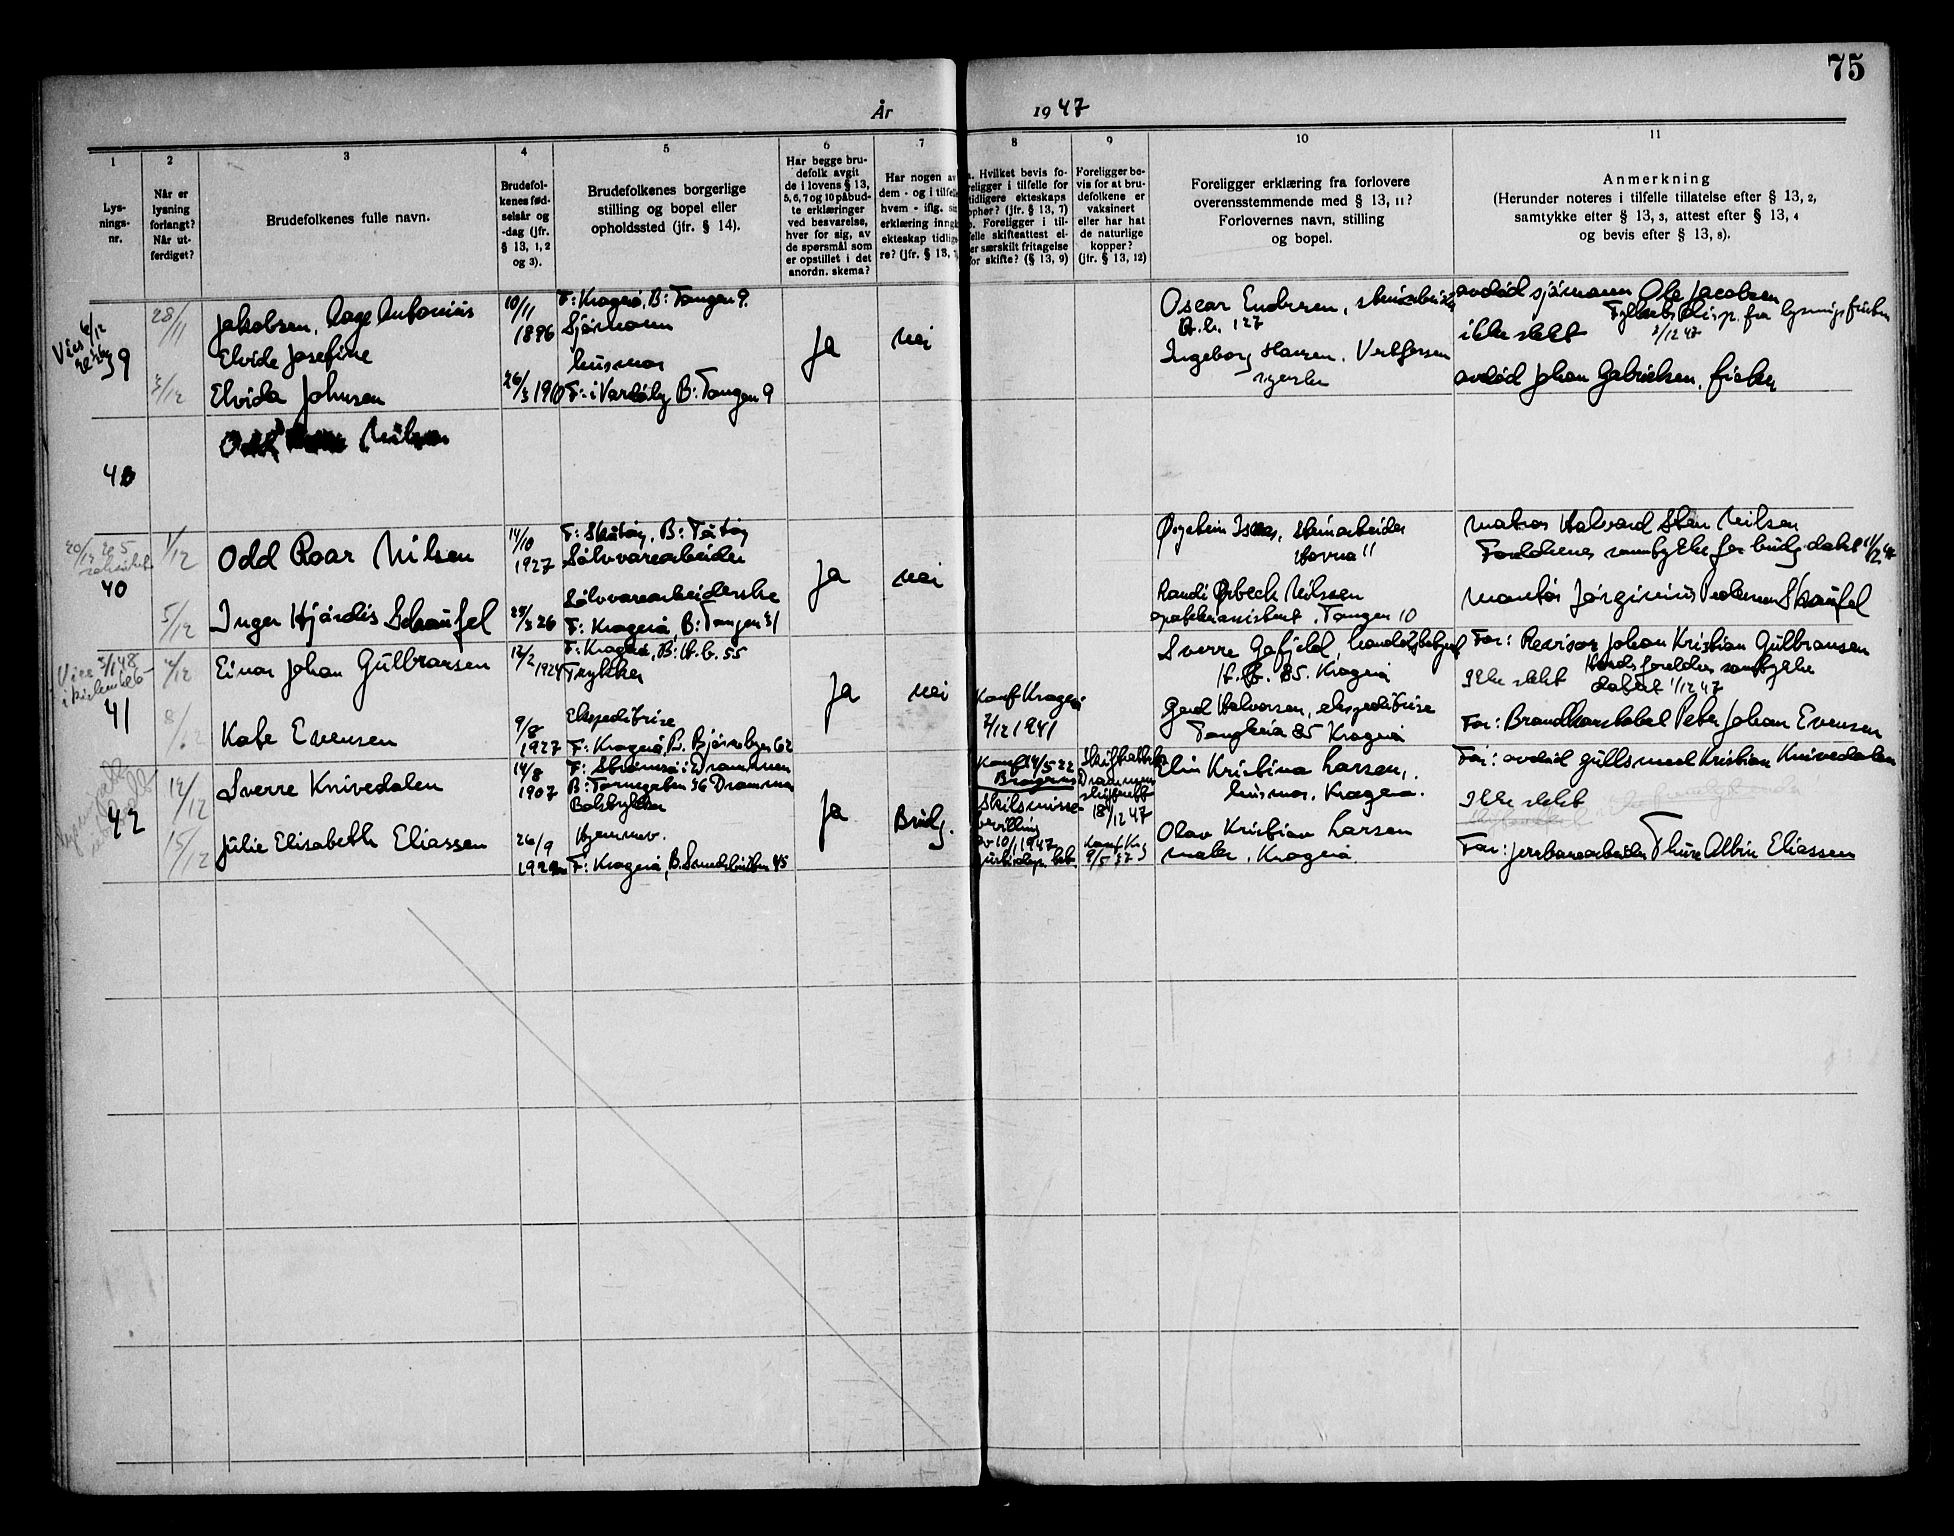 75
År 1947
1 2 3 4 5 6 7 8 9 10 11
Lys-
nings-
nr.
Når er
lysning
forlangt?
Når ut-
ferdiget?
Brudefolkenes fulle navn.
Brudefol-
kenes fød-
selsår og
-dag (jfr.
§ 13, 1, 2
og 3).
Brudefolkenes borgerlige
stilling og bopel eller
opholdssted (jfr. § 14).
Har begge bru-
defolk avgit
de i lovens § 13,
5, 6, 7 og 10 påbud-
te erklæringer
ved besvarelse,
hver for sig, av
de spørsmål som
er opstillet i det
anordn. skema?
Har nogen av
dem - og i tilfelle
hvem - iflg. si
erklæring inngå
ekteskap tidlig
re? (jfr. § 13, 7
a. Hvilket bevis fo-
religger i tilfelle for
tidligere ekteskaps
opher? (jfr. § 13, 7)
b. Foreligger i til-
felle skifteattest el-
ler særskilt fritagelse
for skifte? (§ 13, 9)
Foreligger be-
vis for at bru-
defolkene er
vaksinert
eller har hat
de naturlige
kopper?
(jfr. § 13, 12)
Foreligger erklæring fra forlovere
overensstemmende med § 13, 11?
Forlovernes navn, stilling
og bopel.
Anmerkning
(Herunder noteres i tilfelle tillatelse efter § 13, 2,
samtykke efter § 13, 3, attest efter § 13, 4
og bevis efter § 13, 8).
39
28/11
Jakobsen, Aage Antonius
Elvide Josefine
3/12
Elvida Johnsen
10/11
1896
26/3 1910
F: Kragerø, B: Tangen 9.
Sjømann
husmor
F: i Vardøby B: Tangen 9
Ja
nei
Oscar Endresen,
127
Ingeborg Hansen,
avdød sjømann Ole Jacobsen
ikke slekt
3/12 47
avdød Johan Gabrielsen, fisker
40
Odd Nilsen
40
1/12
Odd Roar Nilsen
5/12
Inger Hjørdis Schaufel
14/10
1927
F: Skåtøy, B: Tåtøy
Sølvvarearbeider
Sølvvarearbeiderske
F: Kragerø, B: Tangen 31
Ja
nei
Øystein Isnes, steinarbeider
Randi Ørbeck Nilssen
Tangen 10
matros Halvard Sten Nilsen
Foreldrenes samtykke for brudg. datert 1/12 47
montør Jørginius Pedersen Skaufel
41
4/12
Einar Johan Gulbransen
8/12
Kate Evensen
12/2 1924
9/8
1927
F: Kragerø, B: H.b. 55
Trykker
Ekspeditrise
F: Kragerø, B. Bjørnsbgs 62
Ja
nei
Konf Kragerø
7/12 1941
Sverre Gafjeld, handelsbetjent
H.b. 85. Kragerø
Gerd Halvorsen, ekspeditrise
85 Kragerø
Far: Revisor Johan Kristian Gulbransen
Ikke slekt
foreldres samtykke
datert 1/12 47
Far: Brandkonstabel Peter Johan Evensen
42
12/12
Sverre Knivedalen
15/12
Julie Elisabeth Eliassen
14/8
1907
26/9
F: Strømsø i Drammen
B: Tornegaten 36 Drammen
Båtbygger
Hjemmev.
F: Kragerø, B. 45
Ja
Brudg.
Konf 14/5 22
Bragernes
Skilsmisse-
bevilling
av 10/1 1947
Skifteattest
Drammen
18/12 47
Konf Kr.
9/5 37
Elin Kristina Larsen,
husmor, Kragerø.
Olav Kristian Larsen
maler, Kragerø
Far: avdød gullsmed Kristian Knivedalen
Ikke slekt
Far: jernbanearbeider Thure Albin Eliassen